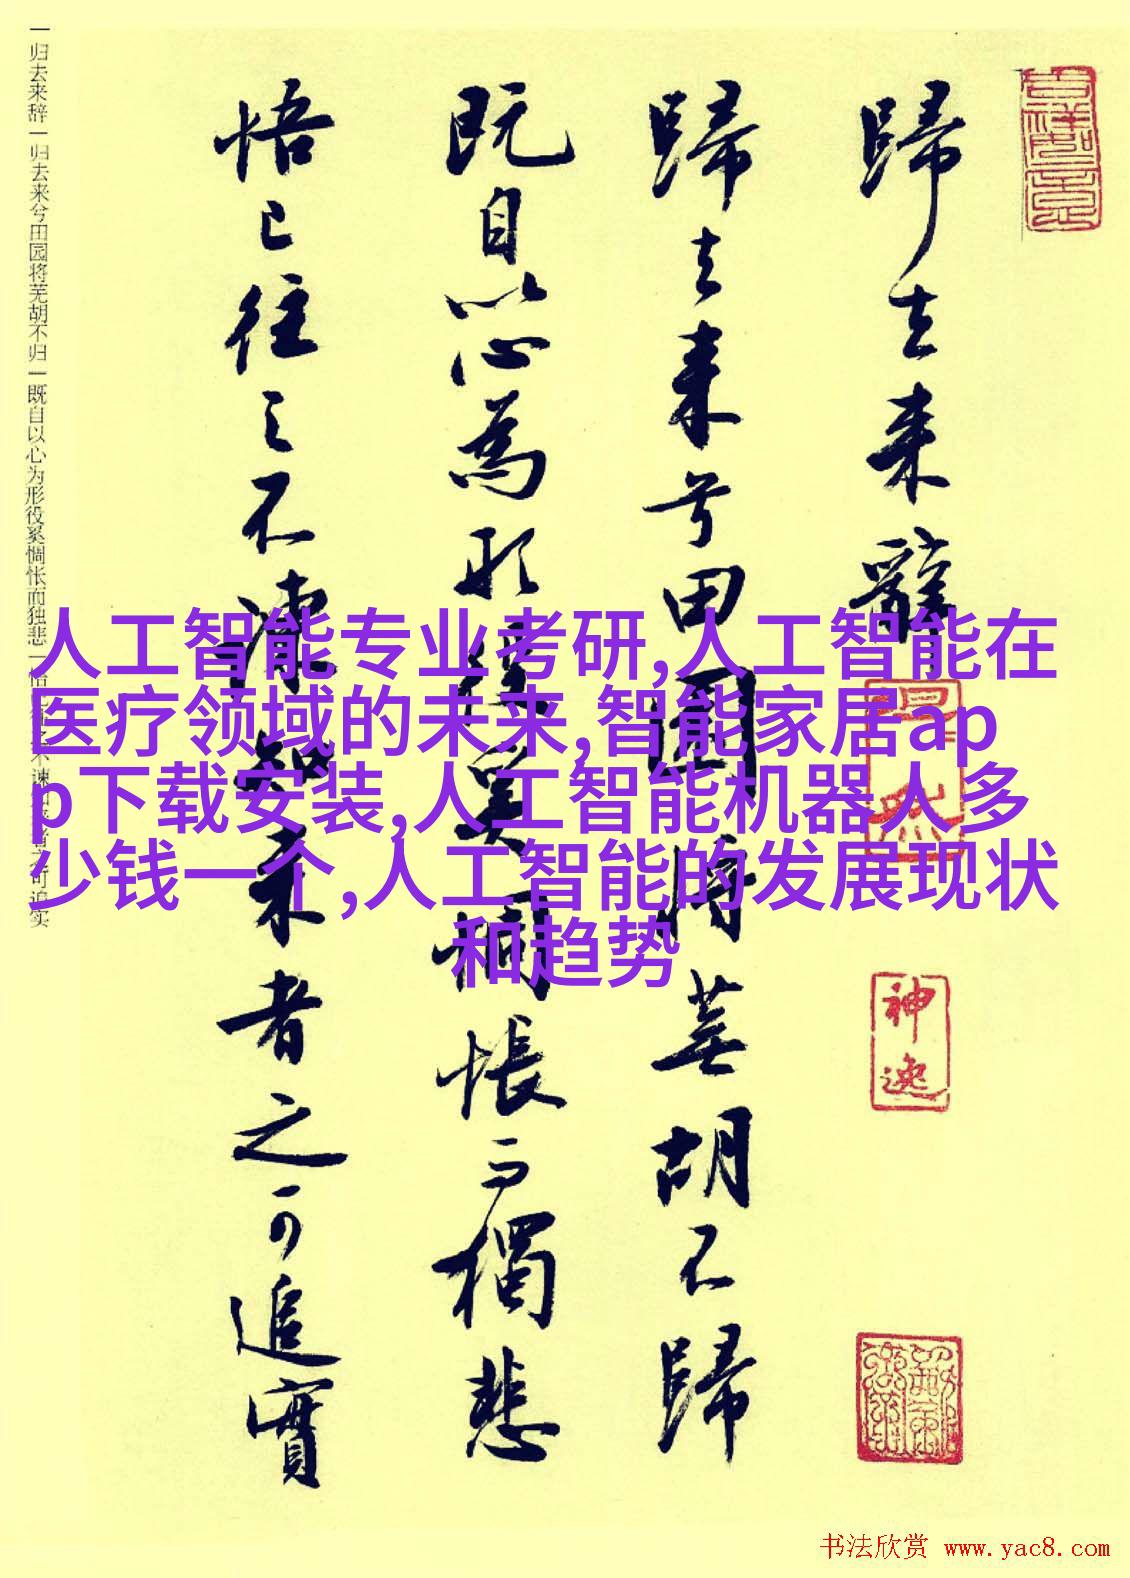 歸去来辭
歸去来兮田園将蕪胡不歸
既自以心為形役奚惆悵而獨悲
悟已往之不谏知来者之可追實
一归去来辞一归去来兮田园将芜胡不归一既自以心为形役奚惆怅而独悲一悟已往之不谏知来者之可追实
人工智能专业考研,人工智能在
医疗领域的未来,智能家居ap
p下载安装,人工智能机器人多
少钱一个,人工智能的发展现状
和趋势
神逸
书法欣赏 www.yac8.com